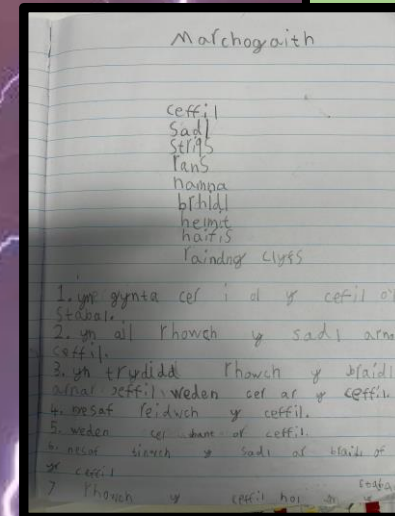 Marchogaith
ceffil
sadl
strips
rans
namna
brhldl
helmit
haitis
raindng clyfs
1. yn gynta cer i ol y cefil o'r
stabal.
2. yn ail rhowch y sadl arno
ceffil.
3. yn trydidd rhowch y blaidl
arnar ceffil. weden cer ar y ceffil.
4. nesaf reidwch y ceffil.
5. weden cer bant of ceffil.
6. nesaf y sadl of braidl of
yr ceffil
7 rhowch y ceffil nol yn y